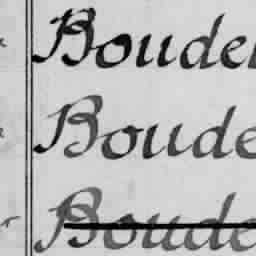 Boude
Boude
Boude